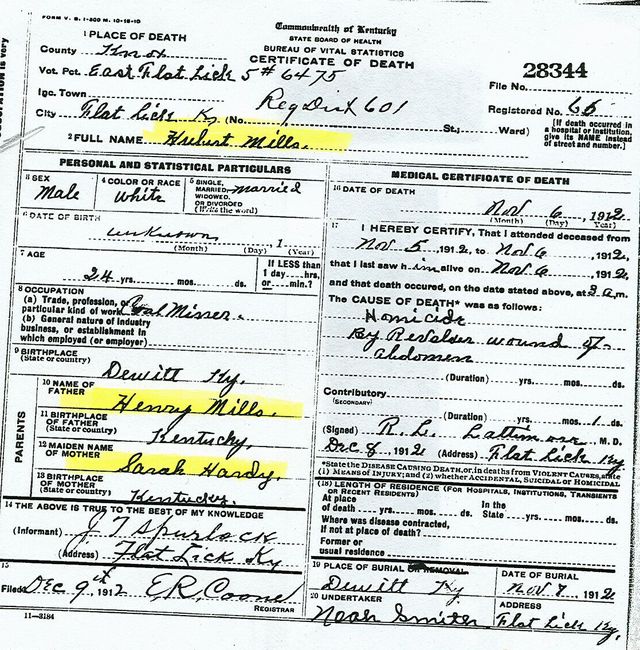 FORM V. S. 1-500 M. 10-18-10
Commonwealth of Kentucky
STATE BOARD OF HEALTH
BUREAU OF VITAL STATISTICS
CERTIFICATE OF DEATH
1 PLACE OF DEATH
County Knox
Vot. Pct. East Flat Lick 5 # 6475
28344
File No.
Inc. Town
Reg Dist 601
Registered No.
City Flat Lick Ky (No. St.; Ward)
[If death occurred in a hospital or institution, give its NAME instead of street and number.]
2 FULL NAME Hubert Mills.
PERSONAL AND STATISTICAL PARTICULARS
3 SEX
Male
4 COLOR OR RACE
White
5 SINGLE, MARRIED, WIDOWED, OR DIVORCED
(Write the word)
married
6 DATE OF BIRTH
unknown, 1
(Month) (Day) (Year)
7 AGE
24 yrs. mos. ds.
If LESS than
1 day....hrs.
or....min.?
8 OCCUPATION
(a) Trade, profession, or
particular kind of work
(b) General nature of industry
business, or establishment in
which employed (or employer)
9 BIRTHPLACE
(State or country)
Dewitt Ky.
PARENTS
10 NAME OF FATHER
Henry Mills.
11 BIRTHPLACE OF FATHER
(State or country)
Kentucky,
12 MAIDEN NAME OF MOTHER
Sarah Hardy,
13 BIRTHPLACE OF MOTHER
(State or country)
Kentucky.
14 THE ABOVE IS TRUE TO THE BEST OF MY KNOWLEDGE
(Informant) J T Spurlock
(Address) Flat Lick Ky
15
Filed Dec 9th, 1912 E.R. Coone
REGISTRAR
11-3184
MEDICAL CERTIFICATE OF DEATH
16 DATE OF DEATH
Nov 6, 1912
(Month) (Day) (Year)
17
I HEREBY CERTIFY, That I attended deceased from
Nov 5, 1912, to Nov 6, 1912,
that I last saw him alive on Nov 6, 1912,
and that death occured, on the date stated above, at 3 a.m.
The CAUSE OF DEATH* was as follows:
Homicide
By Revolver wound of
abdomen
(Duration) yrs. mos. ds.
Contributory
(SECONDARY)
(Duration) yrs. mos. 1 ds.
(Signed) R. L. Lattimore M. D.
Dec 8, 1912 (Address) Flat Lick Ky
*State the DISEASE CAUSING DEATH, or, in deaths from VIOLENT CAUSES, state
(1) MEANS OF INJURY; and (2) whether ACCIDENTAL, SUICIDAL or HOMICIDAL
(18) LENGTH OF RESIDENCE (FOR HOSPITALS, INSTITUTIONS, TRANSIENTS
OR RECENT RESIDENTS)
At place
of death yrs. mos. ds.
In the
State yrs. mos. ds.
Where was disease contracted,
if not at place of death?
Former or
usual residence
19 PLACE OF BURIAL OR REMOVAL
Dewitt Ky
DATE OF BURIAL
Nov. 8, 1912
20 UNDERTAKER
Noah Smith
ADDRESS
Flat Lick Ky,